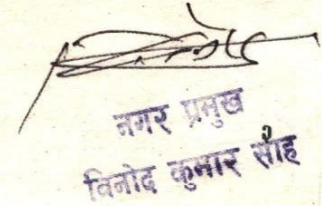 नगर प्रमुख
विनोद कुमार साँह